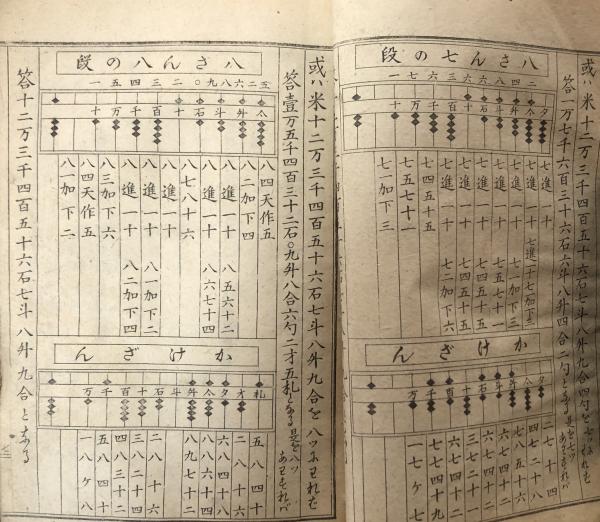 或ハ米十二万三千四百五十六石七斗八舛九合四勺を七ツにわれば
答一万七千六百三十六石六斗八舛四合二勺となる是を七ツあわすれば
八さん七の段
一七六三六六八四二
夕合舛斗石十百千万十
七進一十
七進一十 七進一十七加下三
七進一十 七一加下三
七進一十 七五七十一
七進一十 七四五十五
七進一十 七四五十五
七進一十 七二加下六
七四五十五
七五七十一
七一加下三
かけざん
夕合舛斗石十百千万
二七十四
四七二十八
七八五十六
六七四十二
六七四十二
三七二十一
六七四十二
七七四十九
一七ケ七
或ハ米十二万三千四百五十六石七斗八舛九合を八ツにわれば
答壹万五千四百三十二石〇九舛八合六勺二才五札となる是を八ツあわすれば
八さん八の段
一五四三二〇九八六二五
合舛斗石十百千万十
八四天作五
八二加下四
八進一十 八五六十二
八進一十 八六七十四
八七八十六
八進一十
八進一十 八一加下二
八進一十 八二加下四
八三加下六
八四天作五
八一加下二
かけざん
札才夕合舛斗石十百千万
五八四十
二八十六
六八四十八
八八六十四
八九七十二
二八十六
三八二十四
四八三十二
五八四十
一八ケ八
答十二万三千四百五十六石七斗八舛九合となる